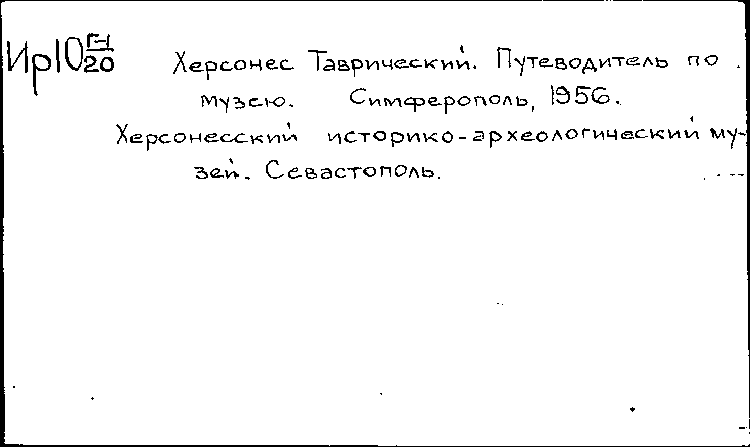 Ир10 Г-1/20 Херсонес Таврический. Путеводитель по
музею. Симферополь, 1956.
Херсонесский историко-археологический му-
зей. Севастополь.